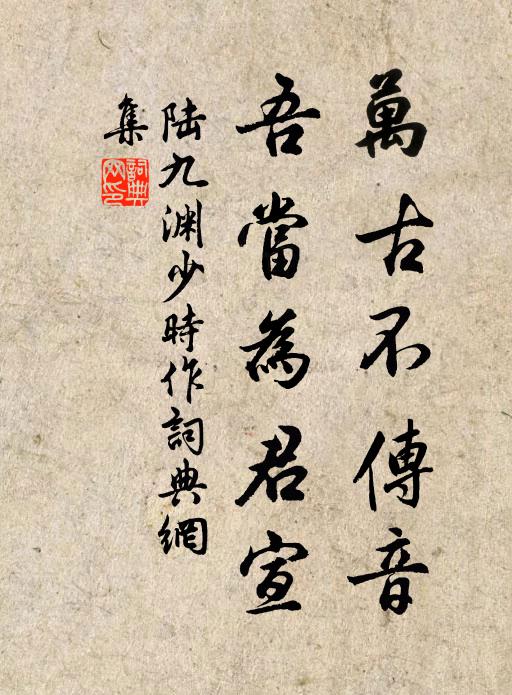 萬古不傳音
吾當為君宣
陸九渊少時作詞典網
集
詞典
网印